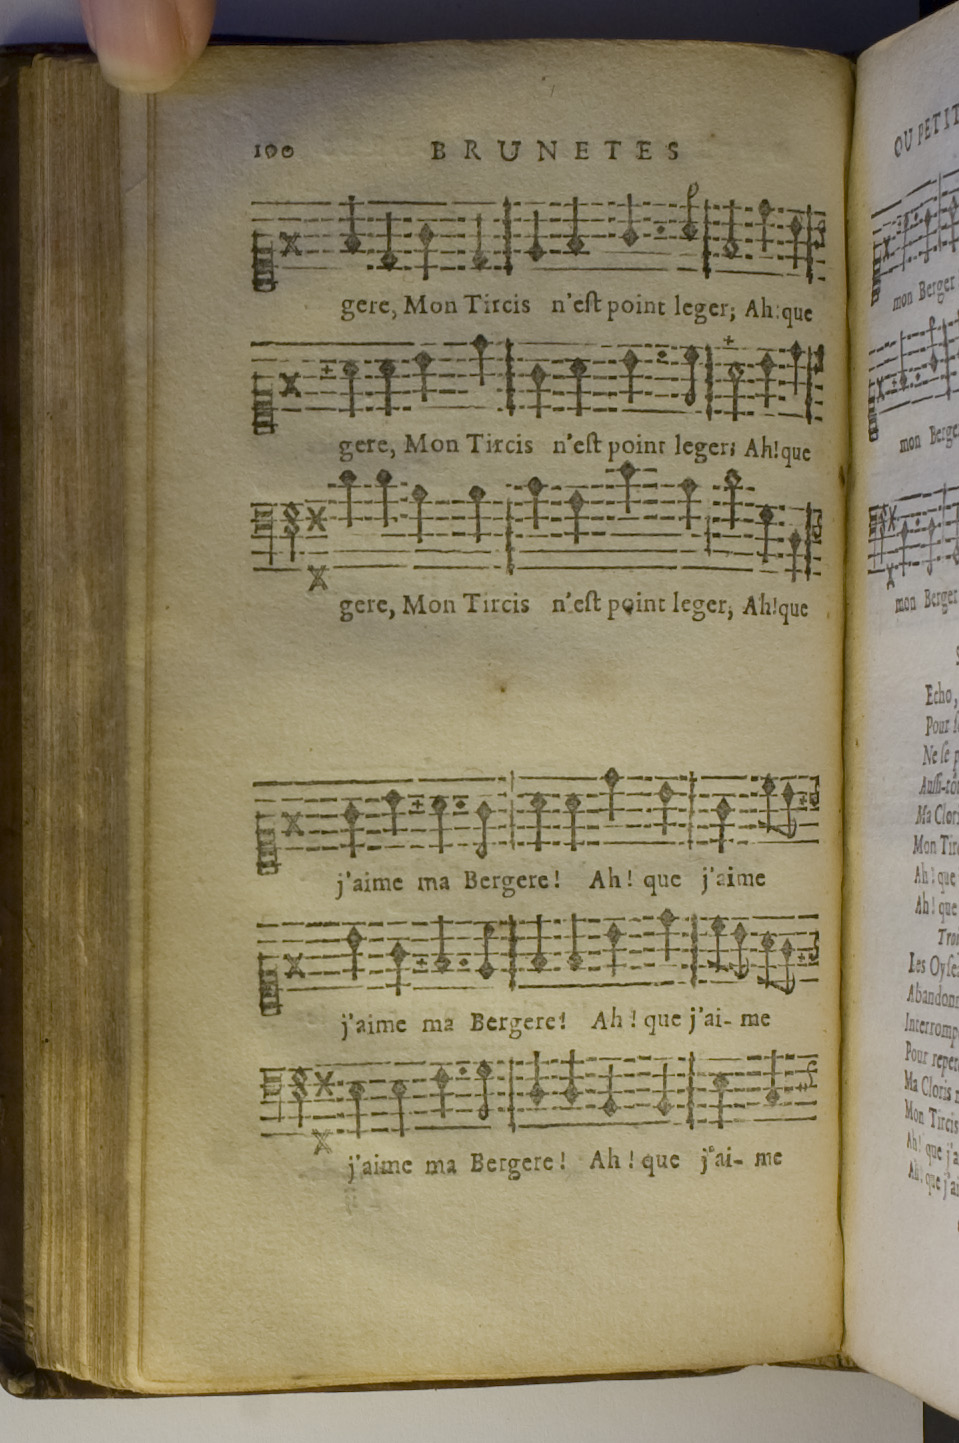 100 BRUNETES
gere, Mon Tircis n'eſt point leger; Ah! que
gere, Mon Tircis n'eſt point leger; Ah! que
gere, Mon Tircis n'eſt point leger; Ah! que
j'aime ma Bergere! Ah! que j'aime
j'aime ma Bergere! Ah! que j'ai- me
j'aime ma Bergere! Ah! que j'ai- me
OU PETIT
mon Berger
mon Berge
mon Berger
Echo,
Pour
Ne ſe
Auſſi-tôt
Ma Cloris
Mon Tirc
Ah! que
Ah! que
Les Oyſe
Abandonn
Interromp
Pour repet
Ma Cloris
Mon Tircis
Ah! que j'a
Ah! que j'ai